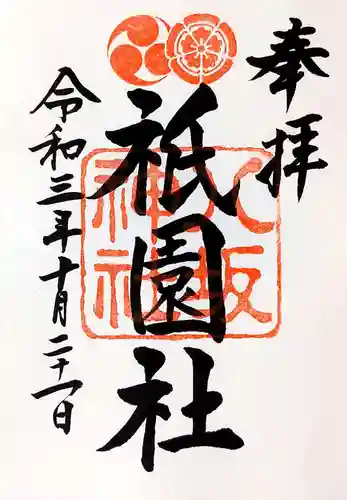 奉拝
祇園社
八坂
神社
令和三年十月二十一日